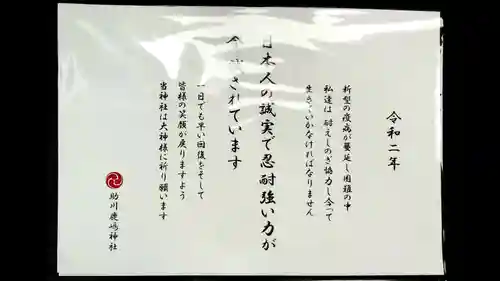 令和二年
新型の疫病が蔓延し困難の中
私達は 耐えしのぎ協力し合って
生きていかなければなりません
日本人の誠実で忍耐強い力が
今 されています
一日でも早い回復をそして
皆様の笑顔が戻りますよう
当神社は大神様に祈り願います
助川鹿嶋神社